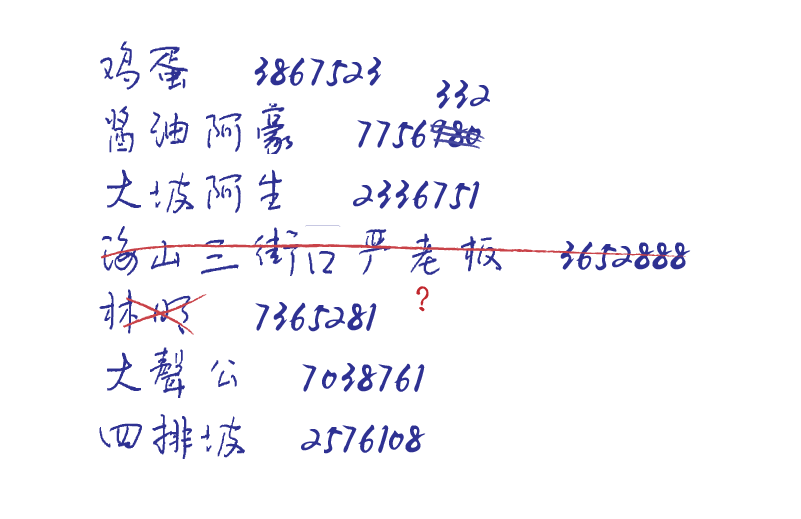 鸡蛋 3867523
332
酱油阿豪 7756980
大坡阿生 2336751
海山三街口严老板 3652888
林明 7365281
?
大聲公 7038761
四排坡 2576108